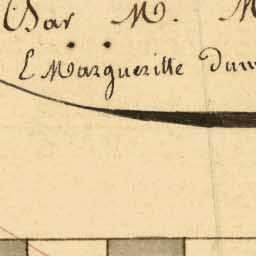 Par M. M
L Margueritte Dum